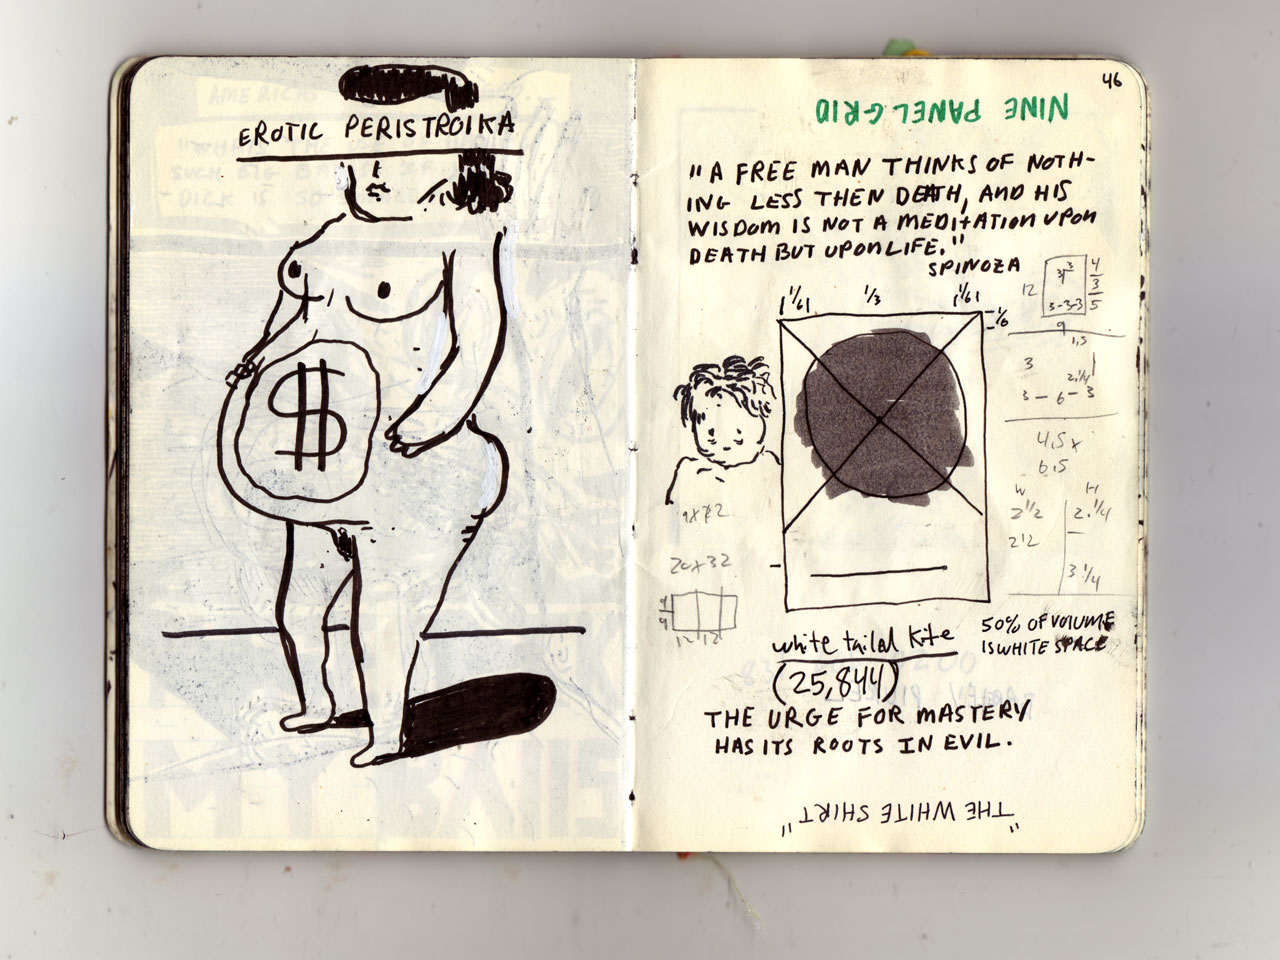 EROTIC PERISTROIKA
$
46
NINE PANEL GRID
"A FREE MAN THINKS OF NOTH-
ING LESS THEN DEATH, AND HIS
WISDOM IS NOT A MEDITATION UPON
DEATH BUT UPON LIFE."
SPINOZA
1/3
1/6
12
3-3-3
4
3
5
9
1,5
3
2 1/4
3 - 6 - 3
4,5 x
6,5
W H
2 1/2
2 1/4
3 1/4
20x32
12 12
50% OF VOLUME
IS WHITE SPACE
white tailed kite
(25,844)
THE URGE FOR MASTERY
HAS ITS ROOTS IN EVIL.
"THE WHITE SHIRT"